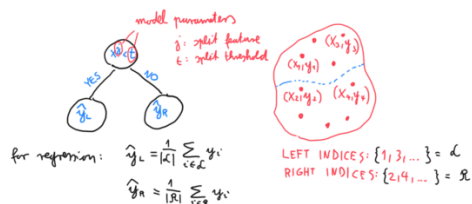 model parameters
x_j < t
j: split feature
t: split threshold
YES
NO
ŷ_L
ŷ_R
(x_3, y_3)
(x_1, y_1)
(x_2, y_2)
(x_4, y_4)
for regression: ŷ_L = 1/|L| ∑_{i∈L} y_i
ŷ_R = 1/|R| ∑_{i∈R} y_i
LEFT INDICES: {1, 3, ...} = L
RIGHT INDICES: {2, 4, ...} = R